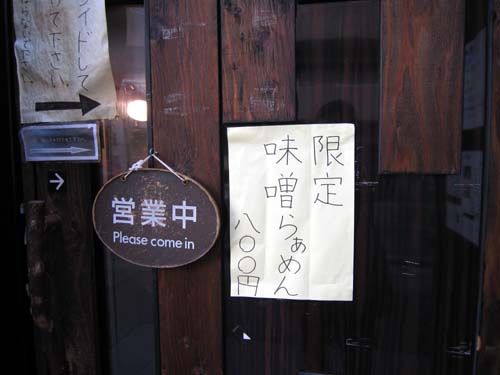 イドして
て下さい
営業中
Please come in
限定
味噌らぁめん
八〇〇円